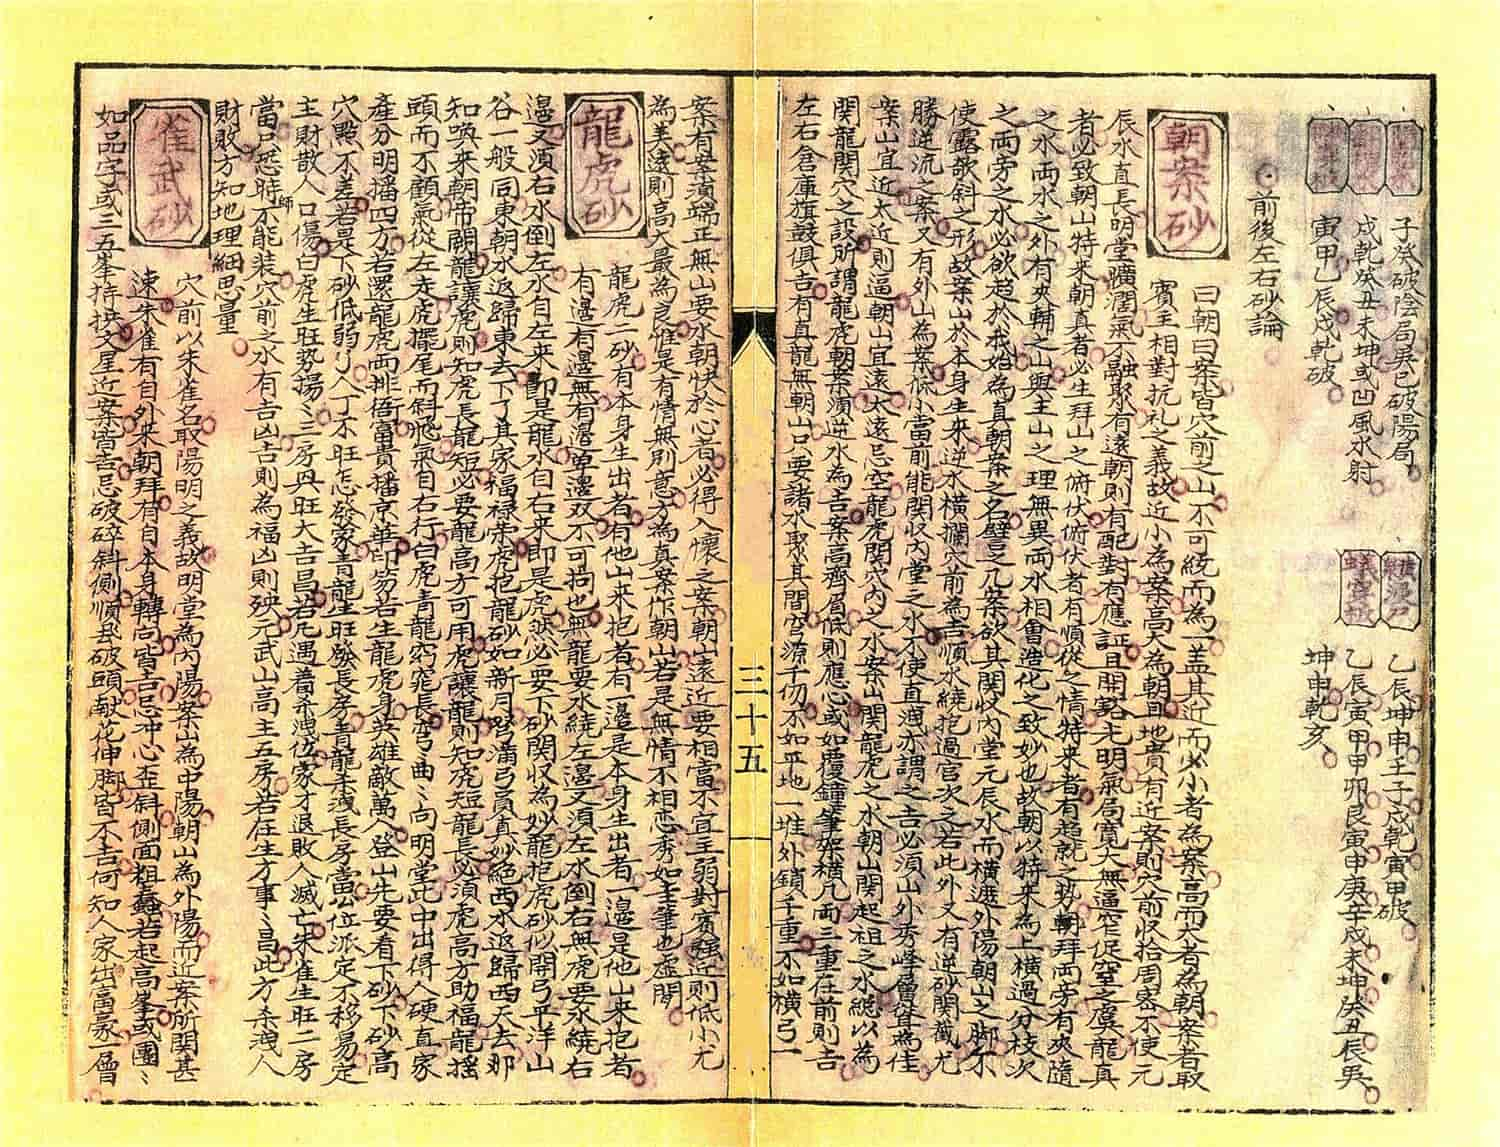 子癸破陰局巽巳破陽局
戌乾癸丑未坤或凹風水射
寅甲乙辰戌乾破
乙辰坤申壬子戌乾寅甲破
乙辰寅甲甲卯艮寅申庚辛戌未坤癸丑辰巽
坤申乾亥
前後左右砂論
朝案砂
曰朝曰案皆穴前之山不可紋而為一盖其近而必小者為案高而大者為朝案者取
賓主相對抗礼之義故近小為案高大為朝且地貴有近案則穴前收拾周密不使元
辰水直長明堂曠濶氣不融聚有遠朝則有配對有應証且開畧光明氣局寬大無逼窄促窒之虞龍真
者必致朝山特來朝真者必生拜山之俯伏俯伏者有順從之情特來者有趨就之势朝拜両旁有夾随
之水両水之外有夾輔之山與主山之理無異両水相會造化之致妙也故朝以特來為上橫過分枝次
之両旁之水必欲趋於我始為真朝案之名譬之几案欲其関收内堂元辰水而橫遮外陽朝山之脚不
使露欹斜之形故案山於本身生來逆水橫攔穴前為吉順水繞抱過宮次之若此外又有逆砂関截尤
勝逆流之案又有外山為案低小當前能関收内堂之水不使直洩亦謂之吉必須山外秀峰層聳為佳
案山宜近太近則逼朝山宜遠太遠忌空龍虎関穴内之水案山関龍虎之水朝山関起祖之水總以為
関龍関穴之設所謂龍虎朝案須逆水為吉案高齊眉低則應心或如覆鐘筆架橫几両三重在前則吉
左右倉庫旗鼓俱吉有真龍無朝山只要諸水聚其間窮源千仞不如平地一堆外鎖千重不如橫弓一
三十五
案有案湏端正無山要水朝快於心者必得入懷之案朝山遠近要相當不宜主弱對賓強近則低小尤
為美遠則高大最為良惟是有情無則意方為真案作朝山若是無情不相恋秀如圭筆也虚閑
龍虎砂
龍虎二砂有本身生出者有他山來抱者有一邉是本身生出者一邉是他山來抱者
有邉有邉無有邉单邉双不可拘也無龍要水繞左邉又湏左水倒右無虎要水繞右
邉又湏右水倒左水自左來即是龍水自右来即是虎然必要下砂関収為妙龍抱虎砂似開弓平洋山
谷一般同東朝水返歸東去下了其家福禄荣虎抱龍砂如新月弯満弓員真妙絕西水返歸西天去那
知喚来朝帝闕龍讓虎則知虎長龍短必要龍高方可用虎讓龍則知虎短龍長必須虎高方助福龍揺
頭而不顧氣從左走虎擺尾而斜飛氣自右行白虎青龍窈窕長弯曲ミ向明堂此中出得人硬直家
產分明播四方若還龍虎両排衙富貴播京華印笏若生龍虎身英雄敵萬人登山先要看下砂下砂高
穴點不差若是下砂低弱了人丁不旺怎發家青龍生旺發長房青龍煞洩長房當公位派定不移易定
主財散人口傷白虎生旺势揚ミ三房興旺大吉昌若凢遇着煞洩位家才退敗人滅亡朱雀生旺二房
當只愁時師不能装穴前之水有吉凶吉則為福凶則殃元武山高主五房若在生方事ミ昌此方煞洩人
財敗方知地理細思量
雀武砂
穴前以朱雀名取陽明之義故明堂為内陽案山為中陽朝山為外陽而近案所関甚
速朱雀有自外來朝拜有自本身轉向皆吉忌冲心歪斜側面粗蠢若起高峯或團ミ
如品字或三五峯持拱文星近案皆吉忌破碎斜側順飛破頭献花伸脚皆不吉何知人家出富豪一層